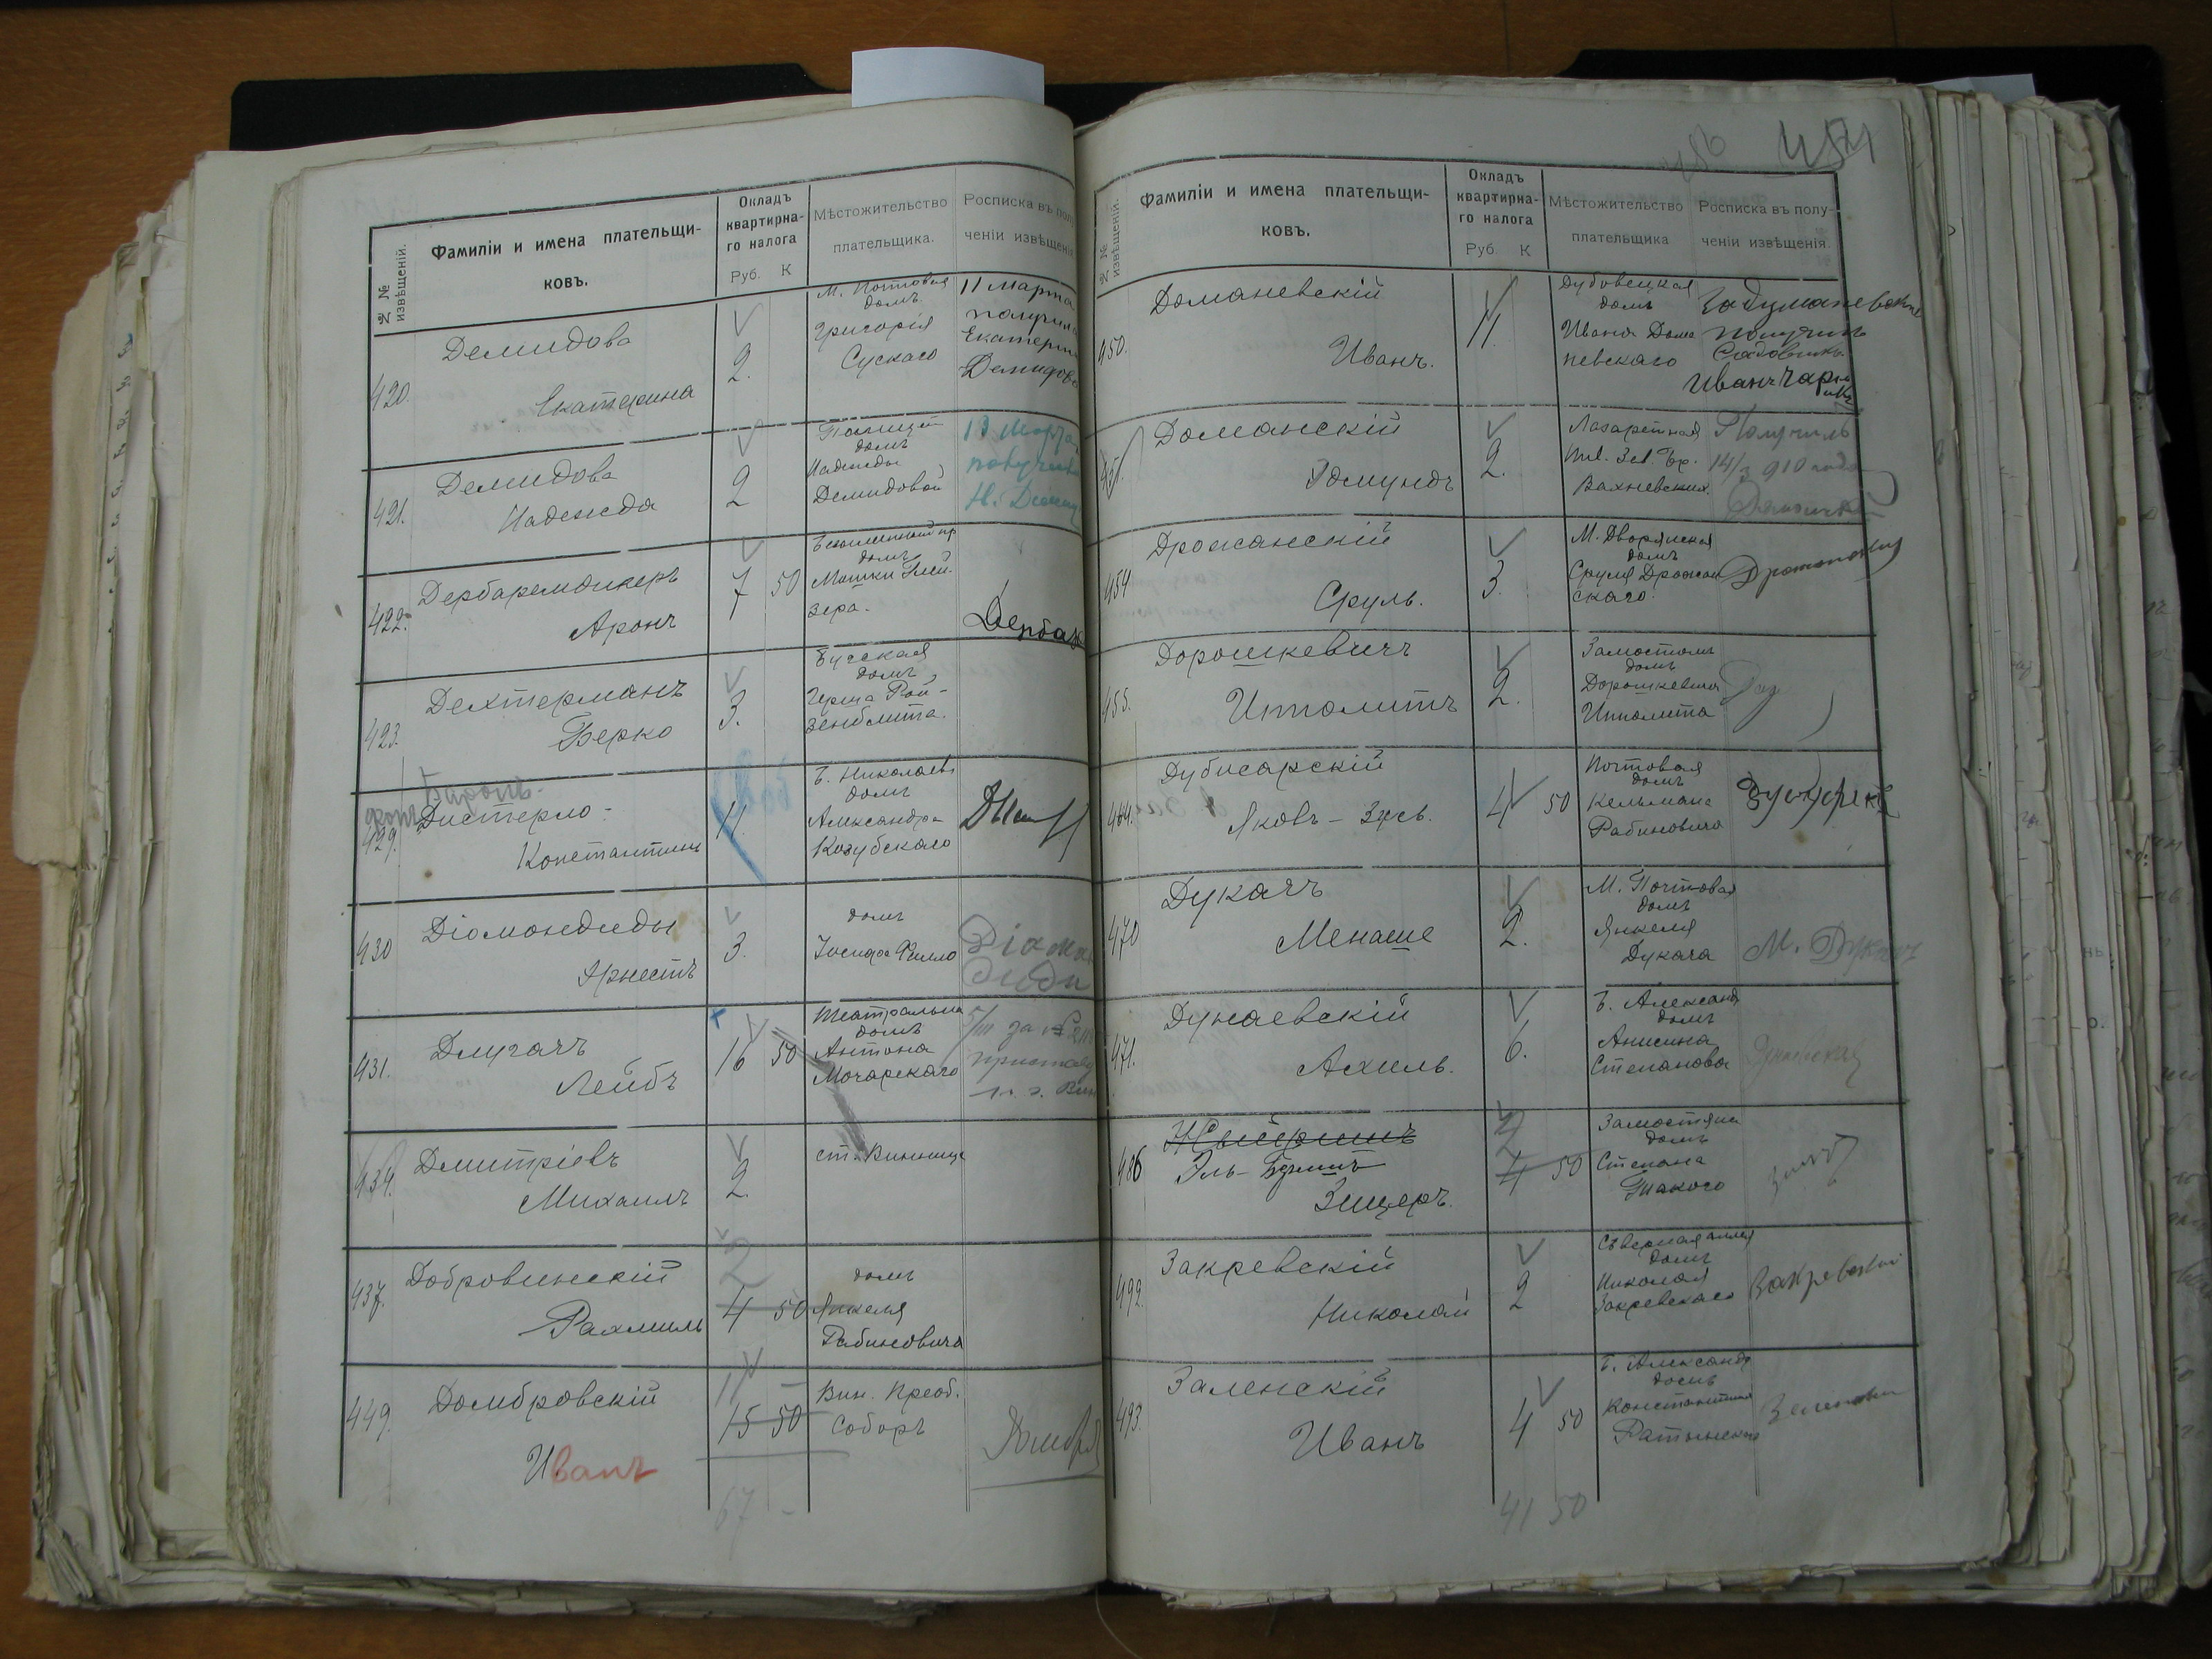 № № извѣщеній.
Фамиліи и имена плательщи-
ковъ.
Окладъ
квартирна-
го налога
Руб. К
Мѣстожительство
плательщика.
Росписка въ полу
ченіи извѣщенія
420.
Демидова
Екатерина
2.
М. Почтовая
домъ
Григорія
Сускаго
11 марта
получила
Екатерина
Демидова
421.
Демидова
Надежда
2
домъ
Надежды
Демидовой
13 Марта
422.
Дербаремдикеръ
Аронъ
7 50
домъ
Мошки Глей-
зера.
Дербар
423.
Дехтерманъ
Берко
3.
Бугская
домъ
Герша Рой-
зенблита.
429.
Баронъ
фонъ
Дистерло
Константинъ
11.
Б. Николаев
домъ
Александра
Козубскаго
430
Діомондиди
Эрнестъ
3.
домъ
Іосифа Филло
Діаман
диди
431.
Длугачъ
Лейбъ
16 50
Театральна
домъ
Антона
Мочарскаго
434.
Дмитріевъ
Михаилъ
2.
ст. Винница
437.
Добровинскій
Рахмиль
2
4 50
домъ
Янкеля
Рабиновича
449.
Домбровскій
Иванъ
11 —
15 50
Вин. Преоб.
Соборъ
67 -
454
№ № извѣщеній.
Фамиліи и имена плательщи-
ковъ.
Окладъ
квартирна-
го налога
Руб. К
Мѣстожительство
плательщика
Росписка въ полу-
ченіи извѣщенія.
450.
Доманевскій
Иванъ.
11.
Дубовецкая
домъ
Ивана Дома
невскаго
За Думаневскаго
получилъ
Садовникъ
Иванъ
451.
Доманскій
Эдмундъ
2.
Лазаретная
Вахневскихъ.
Получилъ
14/3 910 года
454
Дрожанскій
Сруль.
3.
М. Дворянская
домъ
Сруля Дрожан
скаго.
455.
Дорошкевичъ
Ипполитъ
2.
Замостьѣ
домъ
Дорошкевича
Ипполита
464.
Дубисарскій
Яковъ-Зусь.
4 50
Почтовая
домъ
Кельмана
Рабиновича
470
Дукачъ
Менаше
2.
М. Почтовая
домъ
Янкеля
Дукача
М. Дукачъ
471.
Дунаевскій
Ахиль.
6.
Б. Александ
домъ
Анисима
Степанова
486
Зицеръ.
2
4 50
Замостянс
домъ
Степана
492.
Закревскій
Николай
2
Сѣверная аллея
домъ
Николая
Закревскаго
Закревскій
493.
Заленскій
Иванъ
4 50
Б. Александр
домъ
Константина
Ратынска
41 50